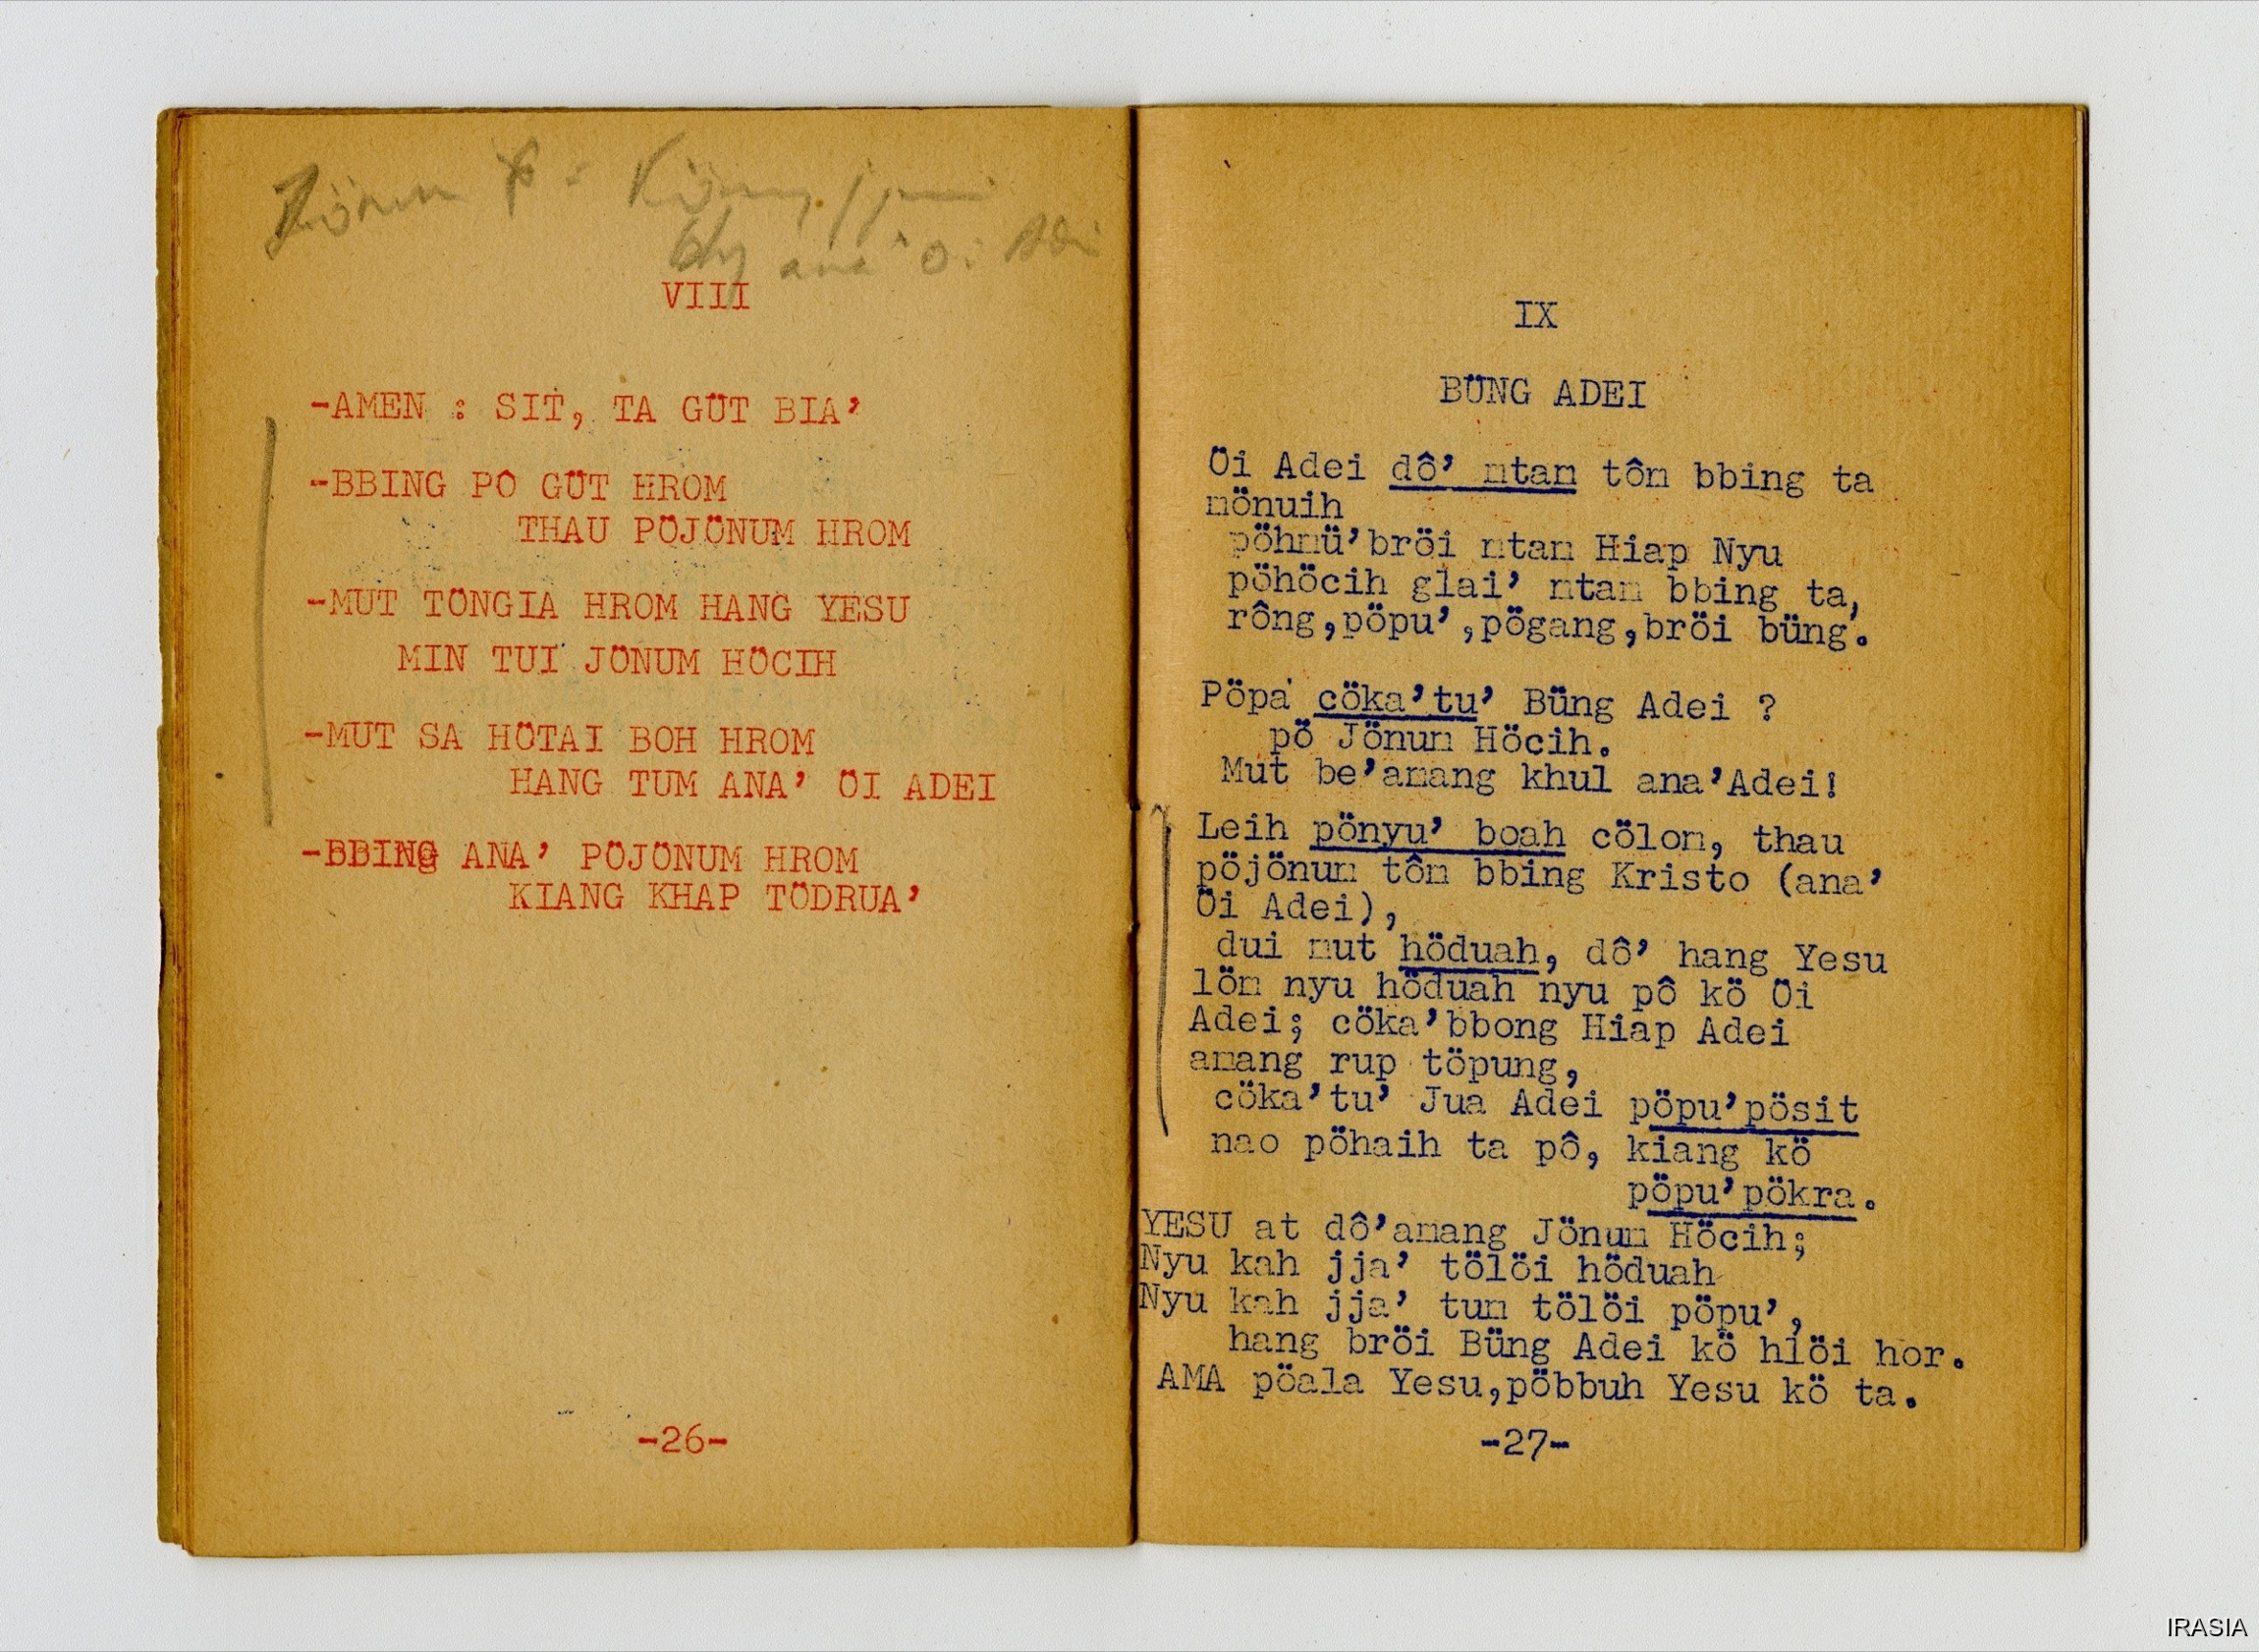 VIII
-AMEN : SIT, TA GÜT BIA’
-BBING PÔ GÜT HROM
THAU PÖJÖNUM HROM
-MUT TÖNGIA HROM HANG YESU
MIN TUI JÖNUM HÖCIH
-MUT SA HÖTAI BOH HROM
HANG TUM ANA’ ÖI ADEI
-BBING ANA’ PÖJÖNUM HROM
KIANG KHAP TÖDRUA’
-26-
IX
BÜNG ADEI
Öi Adei dô’ mtam tôm bbing ta
mönuih
pöhmü’bröi mtam Hiap Nyu
pöhöcih glai’ mtam bbing ta,
rông,pöpu’,pögang,bröi büng.
Pöpa cöka’tu’ Büng Adei ?
pö Jönum Höcih.
Mut be’amang khul ana’Adei!
Leih pönyu’ boah cölom, thau
pöjönum tôm bbing Kristo (ana’
Öi Adei),
dui mut höduah, dô’ hang Yesu
löm nyu höduah nyu pô kö Öi
Adei; cöka’bbong Hiap Adei
amang rup töpung,
cöka’tu’ Jua Adei pöpu’pösit
nao pöhaih ta pô, kiang kö
pöpu’pökra.
YESU at dô’amang Jönum Höcih;
Nyu kah jja’ tölöi höduah
Nyu kah jja’ tum tölöi pöpu’,
hang bröi Büng Adei kö hlöi hor.
AMA pöala Yesu,pöbbuh Yesu kö ta.
-27-
IRASIA